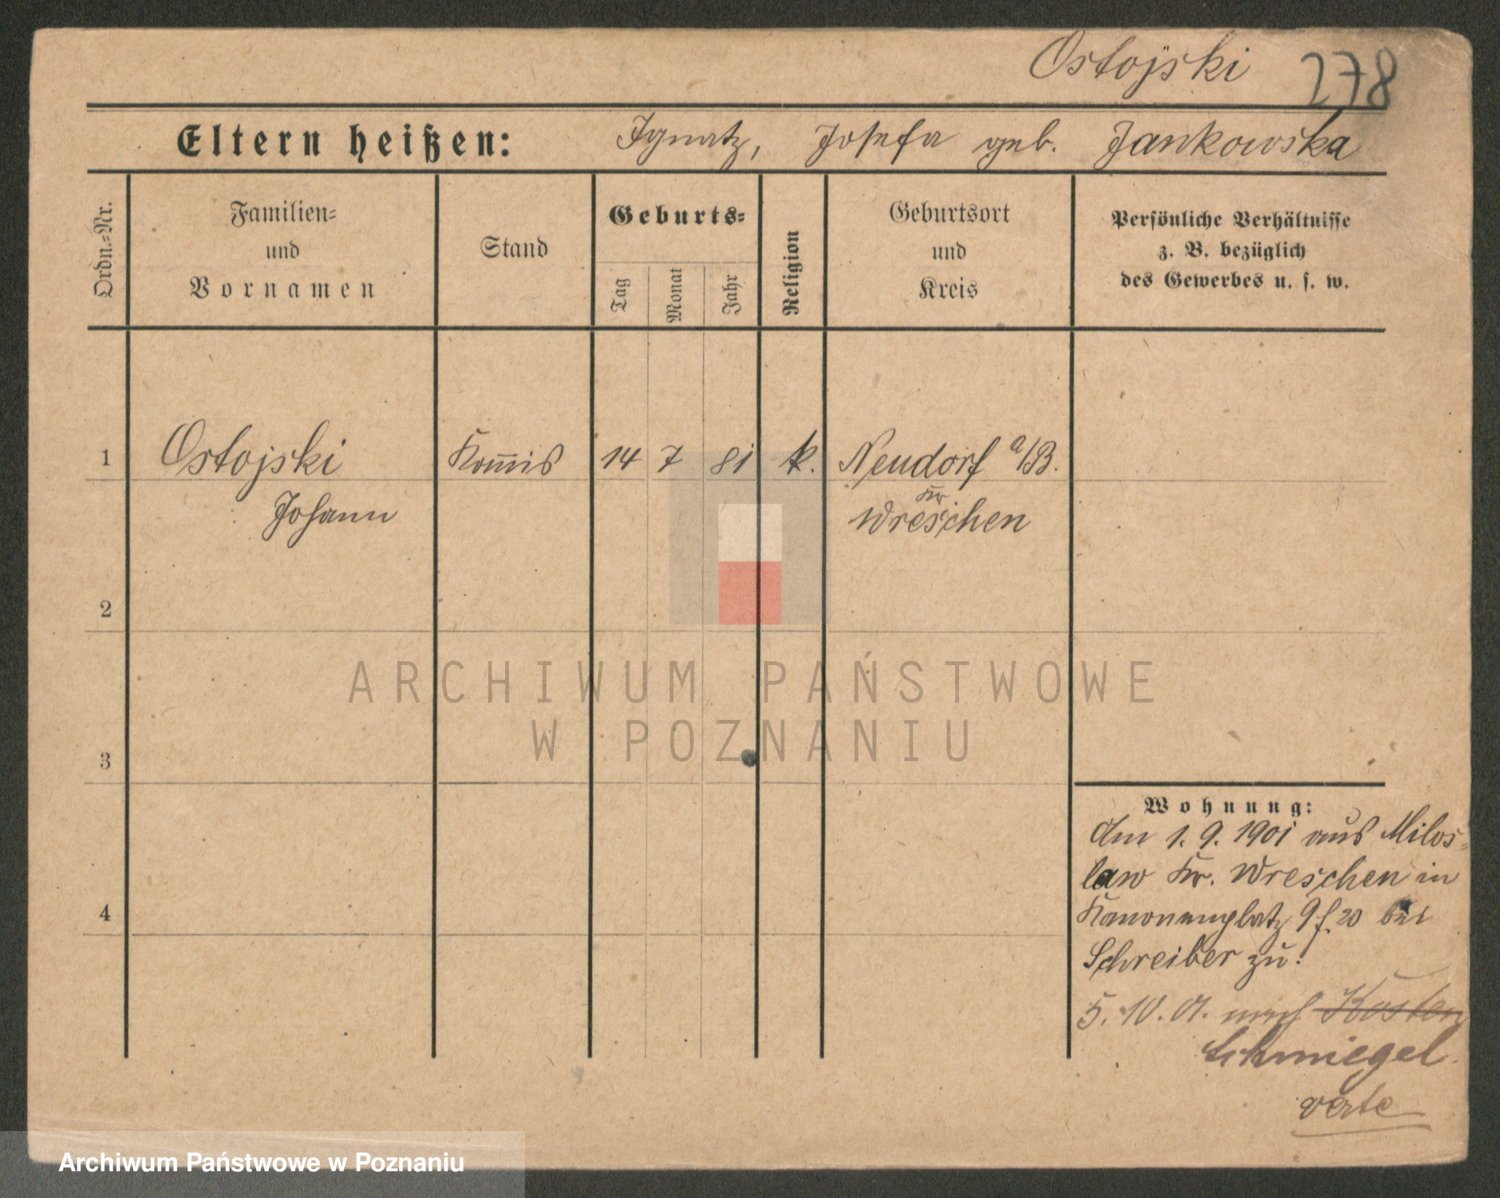 Ostojski 278
Eltern heißen: Ignatz, Josefa geb. Jankowska
Ordn.=Nr.
Familien=
und
Vornamen
Stand
Geburts=
Tag
Monat
Jahr
Religion
Geburtsort
und
Kreis
Persönliche Verhältnisse
z. B. bezüglich
des Gewerbes u. s. w.
1 Ostojski Kom̅is 14 7 81 k. Neudorf a/B.
Johann Kr Wreschen
2
3
4
ARCHIWUM PAŃSTWOWE
W POZNANIU
Wohnung:
Am 1. 9. 1901 aus Milos=
law Kr. Wreschen in
Kanonenplatz 9 f. 20 bei
Schreiber zu.
5. 10. 01. nach Kosten
Schmiegel.
verte
Archiwum Państwowe w Poznaniu